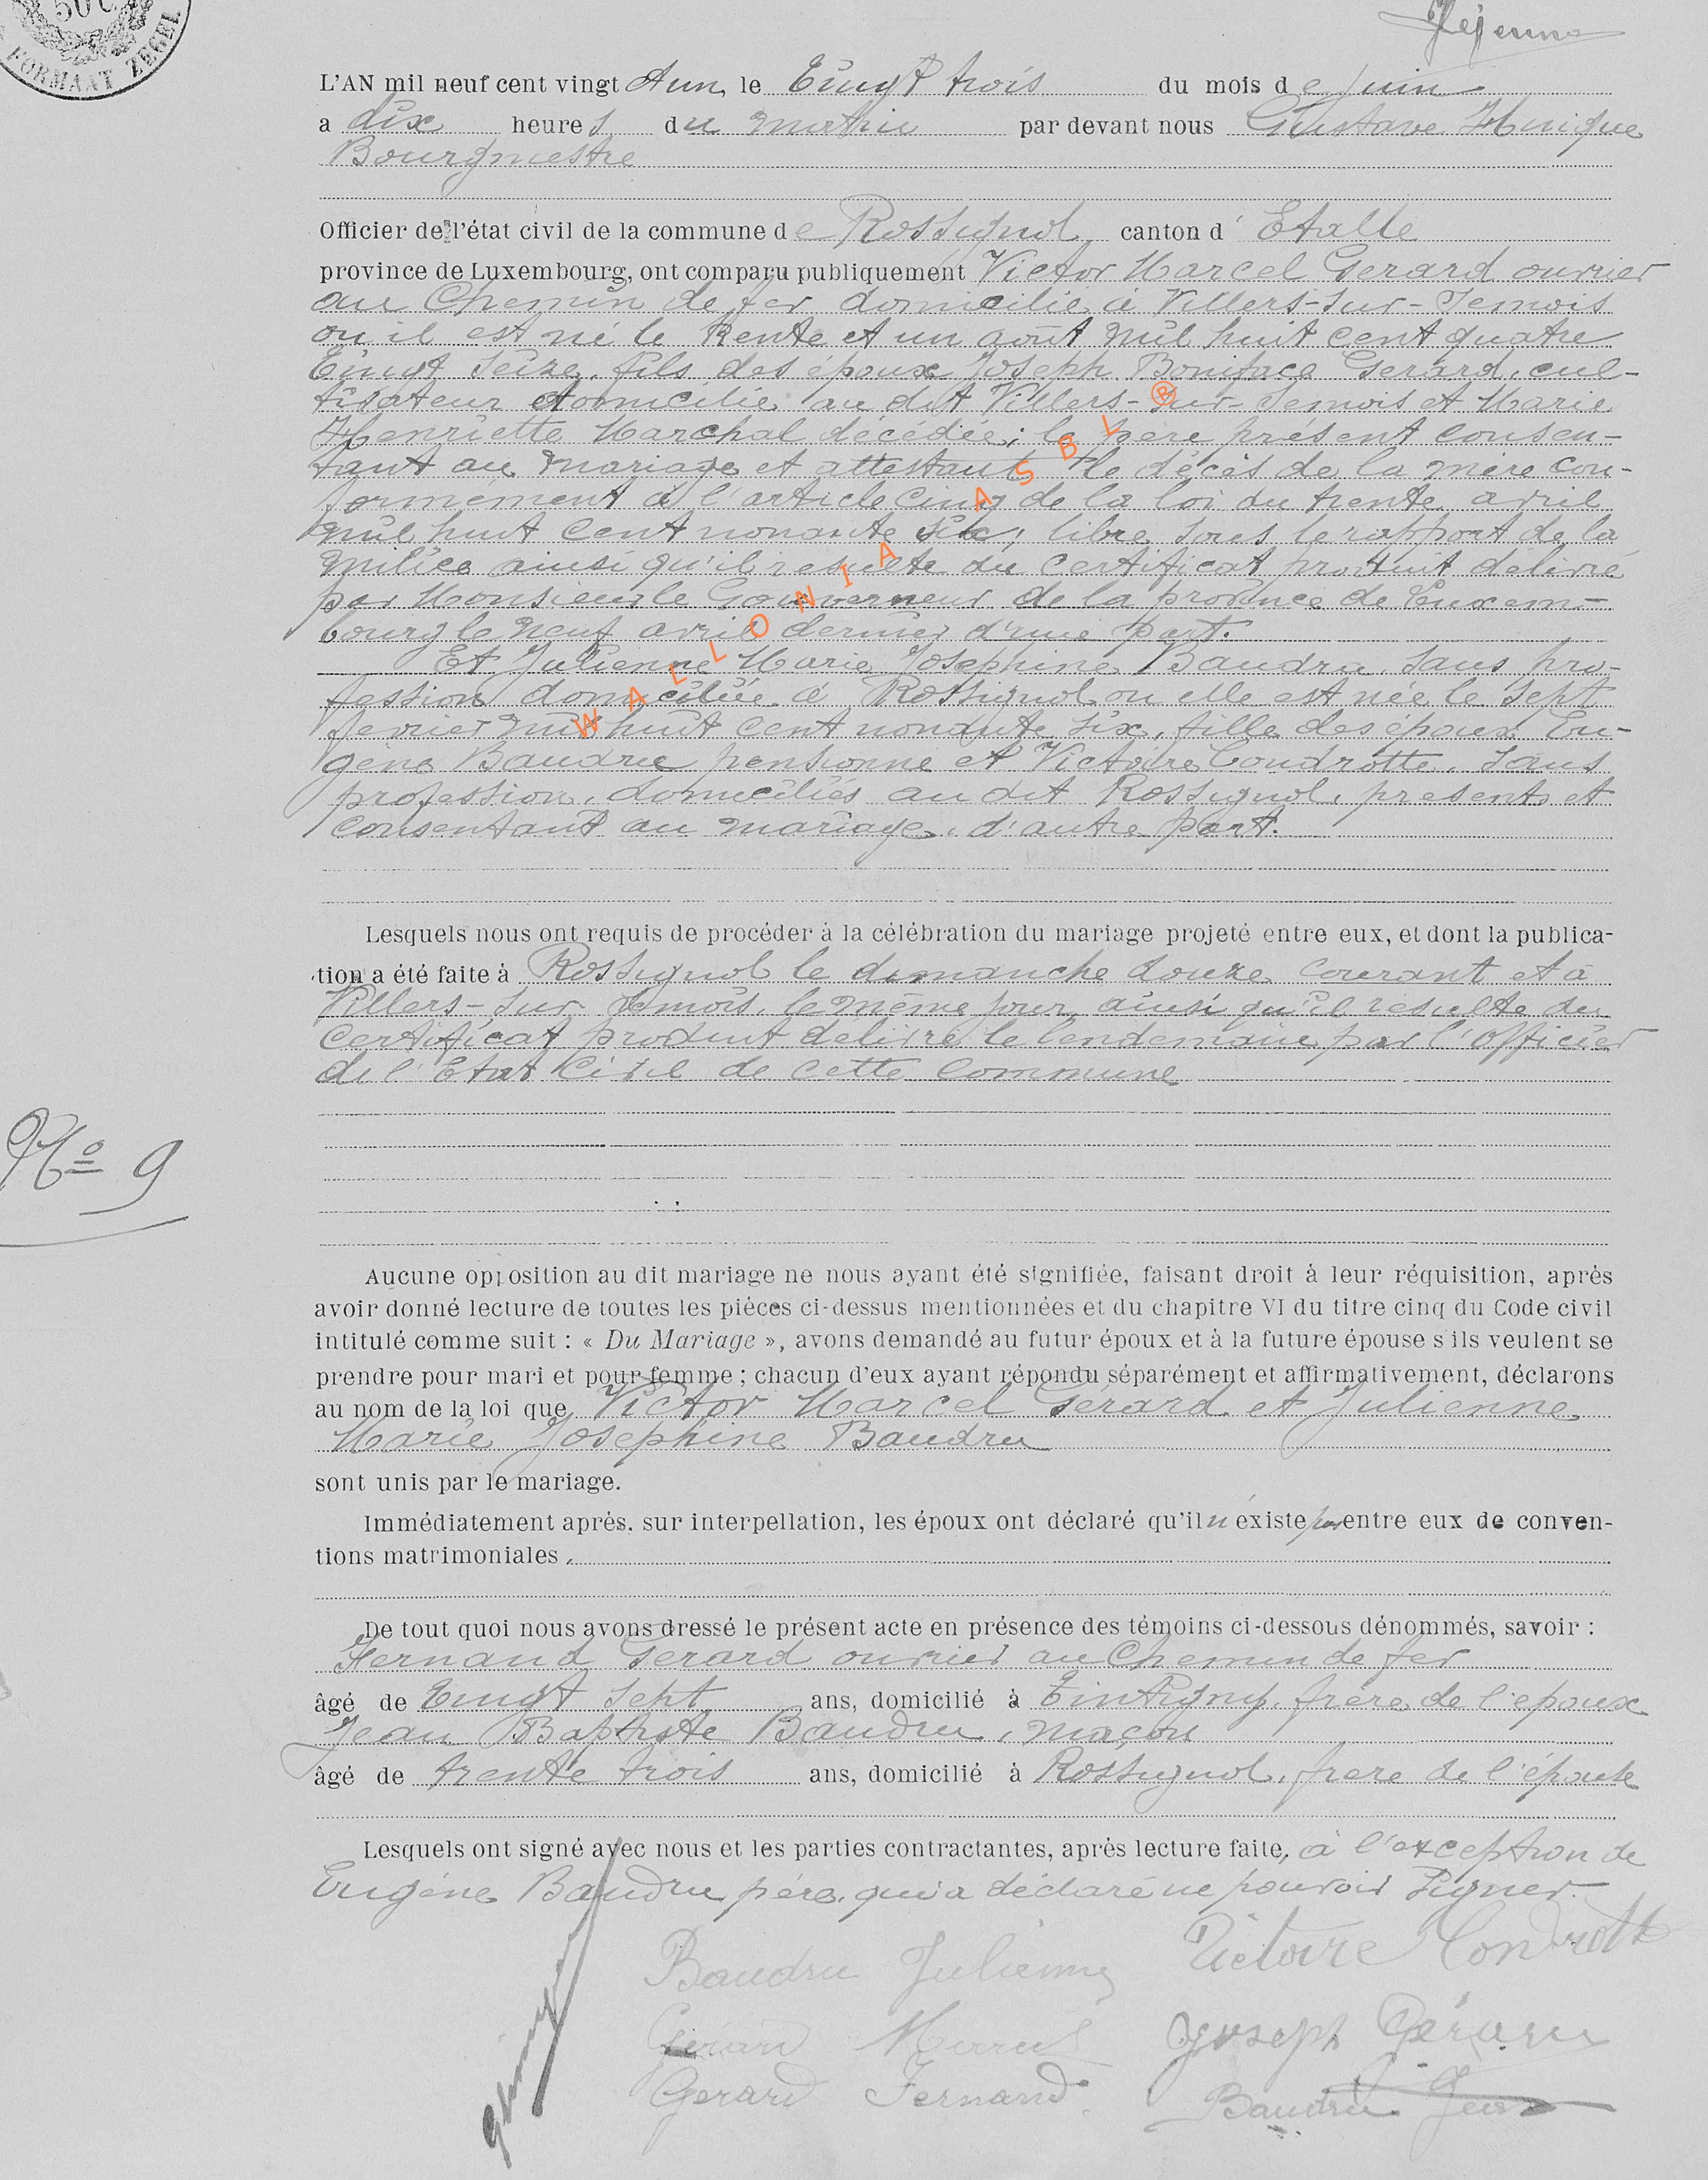 50C
FORMAAT ZEGEL
Lejeune
L'AN mil neuf cent vingt et un, le Vingt trois du mois de Juin
a dix heures du matin par devant nous Gustave Hinique
Bourgmestre
Officier de l'état civil de la commune de Rossignol canton d'Etalle
province de Luxembourg, ont comparu publiquement Victor Marcel Gerard ouvrier
au Chemin de fer domicilié à Villers-sur-Semois
ou il est né le trente et un août mil huit cent quatre
Vingt Seize, fils des époux Joseph Boniface Gerard, cul-
tivateur domicilié au dit Villers-sur-Semois et Marie
Henriette Marchal décédée; le père présent consen-
tant au mariage et attestant le décès de la mère con-
formément à l'article cinq de la loi du trente avril
mil huit cent nonante six; libre sous le rapport de la
milice ainsi qu'il resulte du certificat produit délivré
par Monsieur le Gouverneur de la province de Luxem-
bourg le neuf avril dernier d'une part.
Et Julienne Marie Josephine Baudru sans pro-
fession domiciliée à Rossignol ou elle est née le sept
fevrier mil huit cent nonante six, fille des époux Eu-
gène Baudru pensionné et Victoire Condrotte, sans
profession, domiciliés au dit Rossignol, present et
consentant au mariage, d'autre part.
Lesquels nous ont requis de procéder à la célébration du mariage projeté entre eux, et dont la publica-
tion a été faite à Rossignol le dimanche douze courant et à
Villers-sur-Semois, le même jour, ainsi qu'il resulte du
certificat produit délivré le lendemain par l'officier
de l'Etat Civil de cette commune
No 9
Aucune opposition au dit mariage ne nous ayant été signifiée, faisant droit à leur réquisition, après
avoir donné lecture de toutes les pièces ci-dessus mentionnées et du chapitre VI du titre cinq du Code civil
intitulé comme suit : « Du Mariage », avons demandé au futur époux et à la future épouse s'ils veulent se
prendre pour mari et pour femme ; chacun d'eux ayant répondu séparément et affirmativement, déclarons
au nom de la loi que Victor Marcel Gérard et Julienne
Marie Josephine Baudru
sont unis par le mariage.
Immédiatement après, sur interpellation, les époux ont déclaré qu'il n'existe pas entre eux de conven-
tions matrimoniales.
De tout quoi nous avons dressé le présent acte en présence des témoins ci-dessous dénommés, savoir :
Fernand Gerard ouvrier au Chemin de fer
âgé de Vingt sept ans, domicilié à Tintigny, frère de l'époux
Jean Baptiste Baudru, maçon
âgé de trente trois ans, domicilié à Rossignol, frere de l'épouse
Lesquels ont signé avec nous et les parties contractantes, après lecture faite, à l'exception de
Eugène Baudru père, qui a déclaré ne pouvoir signer.
Baudru Julienne Victoire Condrotte
Gérard Marcel Joseph Gérard
Gerard Fernand Baudru Jean
WALLONIA ASBL ®